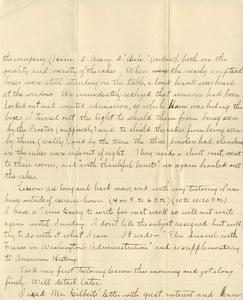 the company (Jeanne D. Geary D "Avis" (author)), both on the
quality and variety of the cakes. When the nearly emptied
boxes were still standing on the table, a loud knock was heard
at the window. We immediately realized that someone had been
locked out and wanted admission, so while was hiding the
boys I turned out the light to shield them from being seen
by the Proctor (supposedly) and to shield the cakes from being seen
by them (really), and by the time the three had climbed
in the cakes were out of sight. They made a short visit, went
to their rooms, and "with thankful hearts" we again hauled out
the cakes.
Lessons are long and hard now, and with my tutoring I am
busy outside of exercise hours. (4 or 5 to 6 P.M.) (10 to 10.30 P.M.)
I have a Term Essay to write for next week so will not write
again until Sunday. I don't like the subject assigned but will
try to do what I can. I read "The Quarrel with
France in Washington's Administration" and is supplementary
to American History.
Took my first tutoring lesson this morning and got along
finely. Will detail later.
I read Mr. Gilbert's letter with great interest and